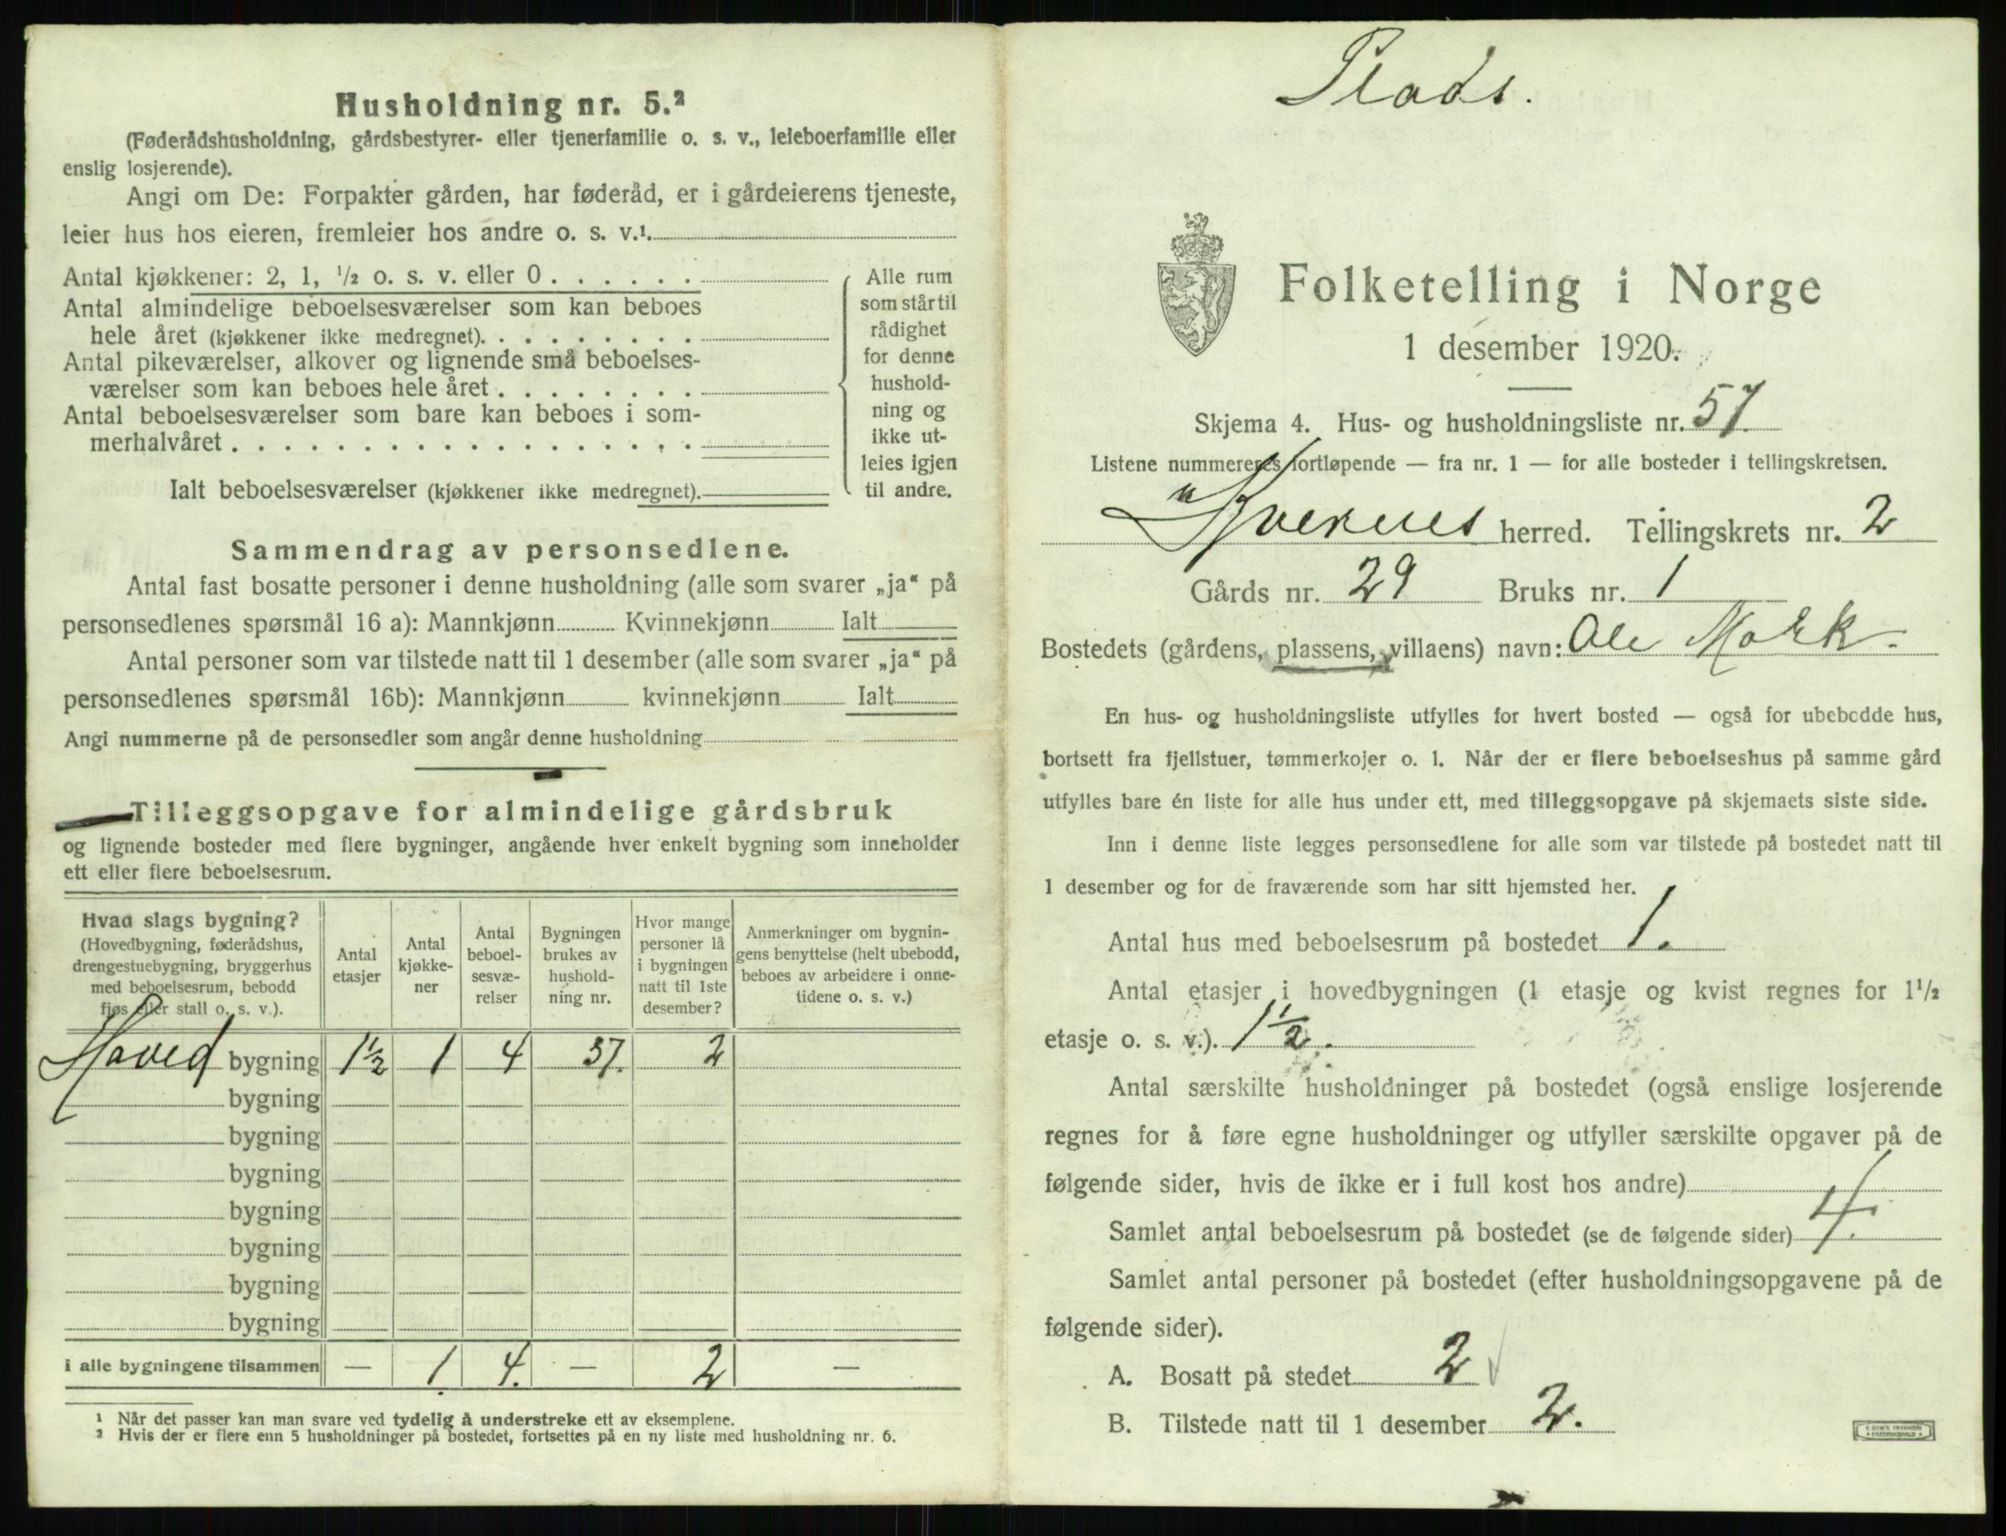 Husholdning nr. 5.²
(Føderådshusholdning, gårdsbestyrer- eller tjenerfamilie o. s. v., leieboerfamilie eller
enslig losjerende).
Angi om De: Forpakter gården, har føderåd, er i gårdeierens tjeneste,
leier hus hos eieren, fremleier hos andre o. s. v.¹
Antal kjøkkener: 2, 1, ¹/₂ o. s. v. eller 0 . . . . . .
Antal almindelige beboelsesværelser som kan beboes
hele året (kjøkkener ikke medregnet). . . . . . . . .
Antal pikeværelser, alkover og lignende små beboelses-
værelser som kan beboes hele året . . . . . . . .
Antal beboelsesværelser som bare kan beboes i som-
merhalvåret . . . . . . . . . . . . . . . . . .
Ialt beboelsesværelser (kjøkkener ikke medregnet).
Alle rum
som står til
rådighet
for denne
hushold-
ning og
ikke ut-
leies igjen
til andre.
Sammendrag av personsedlene.
Antal fast bosatte personer i denne husholdning (alle som svarer „ja“ på
personsedlenes spørsmål 16 a): Mannkjønn Kvinnekjønn Ialt
Antal personer som var tilstede natt til 1 desember (alle som svarer „ja“ på
personsedlenes spørsmål 16b): Mannkjønn kvinnekjønn Ialt
Angi nummerne på de personsedler som angår denne husholdning
Tilleggsopgave for almindelige gårdsbruk
og lignende bosteder med flere bygninger, angående hver enkelt bygning som inneholder
ett eller flere beboelsesrum.
Hvad slags bygning?
(Hovedbygning, føderådshus,
drengestuebygning, bryggerhus
med beboelsesrum, bebodd
fjøs eller stall o. s. v.).
Antal
etasjer
Antal
kjøkke-
ner
Antal
beboel-
sesvæ-
relser
Bygningen
brukes av
hushold-
ning nr.
Hvor mange
personer lå
i bygningen
natt til 1ste
desember?
Anmerkninger om bygnin-
gens benyttelse (helt ubebodd,
beboes av arbeidere i onne-
tidene o. s. v.)
Hoved bygning 1½ 1 4 57. 2
bygning
bygning
bygning
bygning
bygning
bygning
bygning
i alle bygningene tilsammen — 1 4. — 2 —
¹ Når det passer kan man svare ved tydelig å understreke ett av eksemplene.
² Hvis der er flere enn 5 husholdninger på bostedet, fortsettes på en ny liste med husholdning nr. 6.
Plads.
Folketelling i Norge
1 desember 1920.
Skjema 4. Hus- og husholdningsliste nr. 57.
Listene nummereres fortløpende — fra nr. 1 — for alle bosteder i tellingskretsen.
Kvernes herred. Tellingskrets nr. 2
Gårds nr. 29 Bruks nr. 1
Bostedets (gårdens, plassens, villaens) navn: Ole Mork.
En hus- og husholdningsliste utfylles for hvert bosted — også for ubebodde hus,
bortsett fra fjellstuer, tømmerkojer o. l. Når der er flere beboelseshus på samme gård
utfylles bare én liste for alle hus under ett, med tilleggsopgave på skjemaets siste side.
Inn i denne liste legges personsedlene for alle som var tilstede på bostedet natt til
1 desember og for de fraværende som har sitt hjemsted her.
Antal hus med beboelsesrum på bostedet 1.
Antal etasjer i hovedbygningen (1 etasje og kvist regnes for 1¹/₂
etasje o. s. v.). 1½.
Antal særskilte husholdninger på bostedet (også enslige losjerende
regnes for å føre egne husholdninger og utfyller særskilte opgaver på de
følgende sider, hvis de ikke er i full kost hos andre)
Samlet antal beboelsesrum på bostedet (se de følgende sider) 4.
Samlet antal personer på bostedet (efter husholdningsopgavene på de
følgende sider).
A. Bosatt på stedet 2
B. Tilstede natt til 1 desember 2.